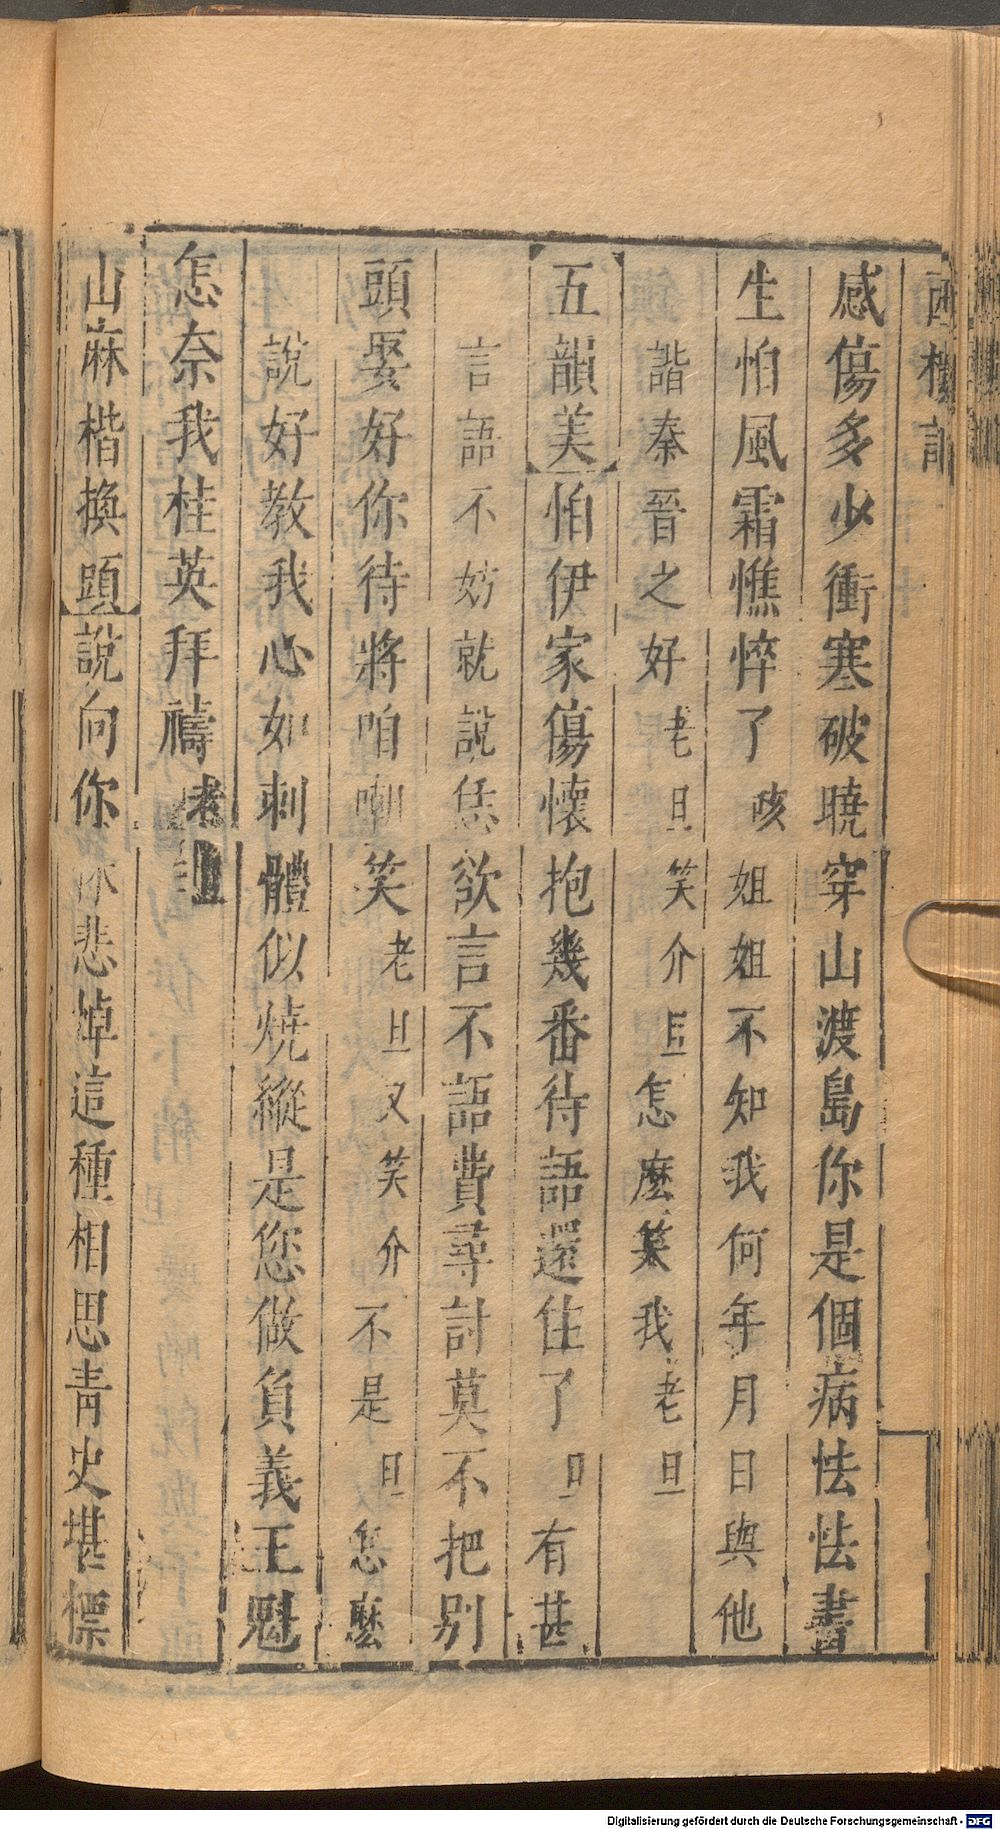 西樓記
感傷多少衝寒破曉穿山渡島你是個病怯怯書
生怕風霜憔悴了咳姐姐不知我何年月日與他
諧秦晉之好老旦笑介旦怎麽笑我老旦
五韻美怕伊家傷懷抱幾番待語還住了旦有甚
言語不妨就說恁欲言不語費尋討莫不把別
頭娶好你待將咱嘲笑老旦又笑介不是旦怎麽
說好教我心如刺體似燒縱是您做負義王魁
怎奈我桂英拜禱老旦
山麻楷換頭說向你你悲悼這種相思青史堪標
Digitalisierung gefördert durch die Deutsche Forschungsgemeinschaft - DFG